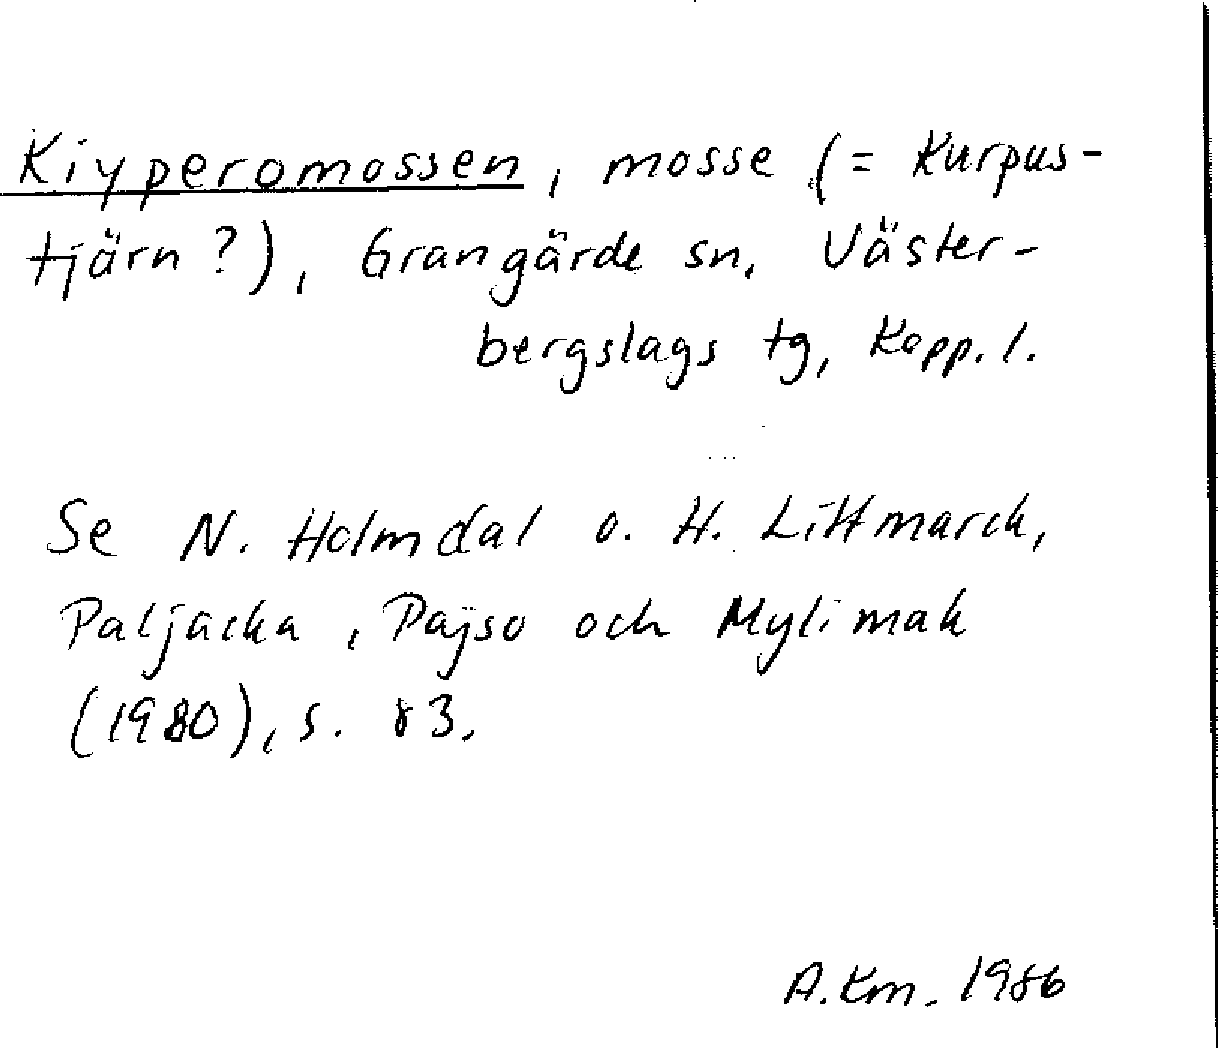 Kiyperomossen, mosse (= Kurpus-
tjärn?), Grangärde sn, Väster-
bergslags tg, Kopp. l.
Se N. Holmdal o. H. Littmarck,
Paljacka, Pajso och Mylimak
(1980), s. 83.
A. Km. 1986